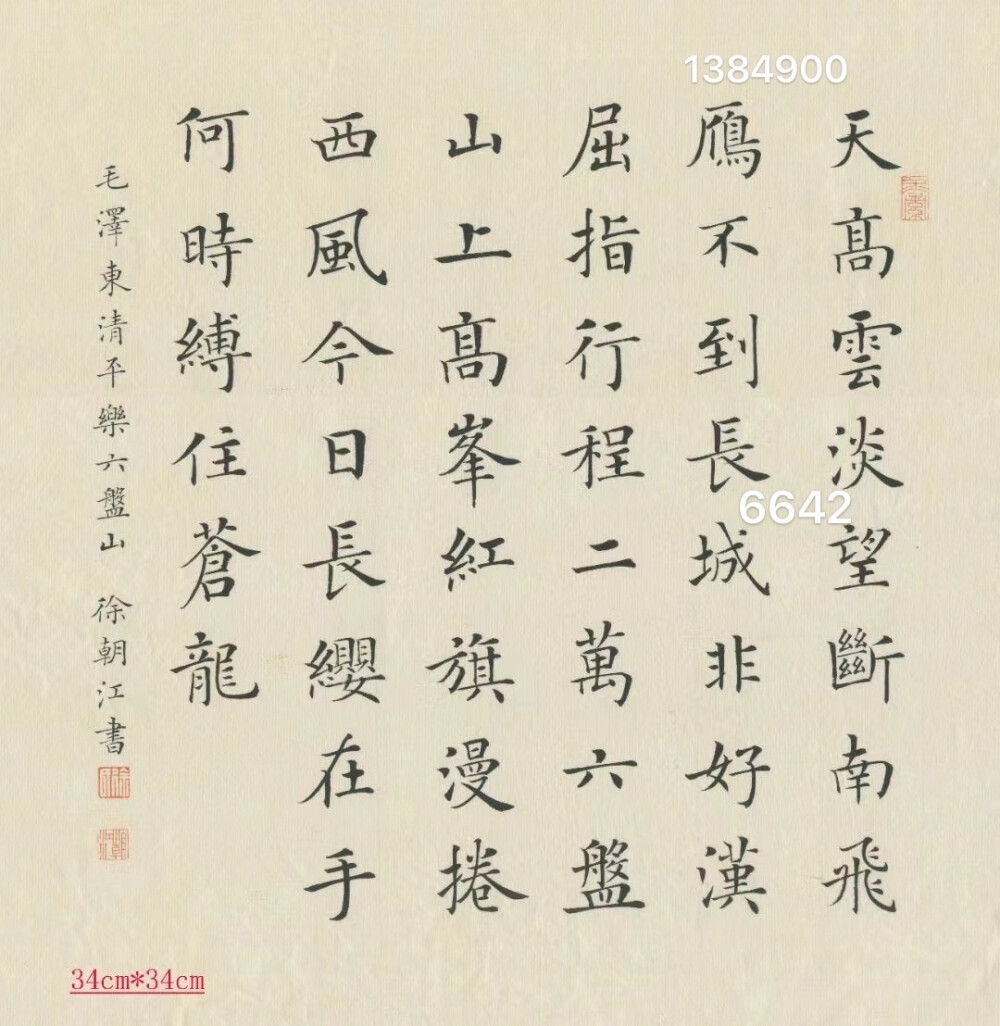 天高雲淡望斷南飛
鴈不到長城非好漢
屈指行程二萬六盤
山上高峯紅旗漫捲
西風今日長纓在手
何時縛住蒼龍
毛澤東清平樂六盤山 徐朝江書
1384900
6642
34cm*34cm